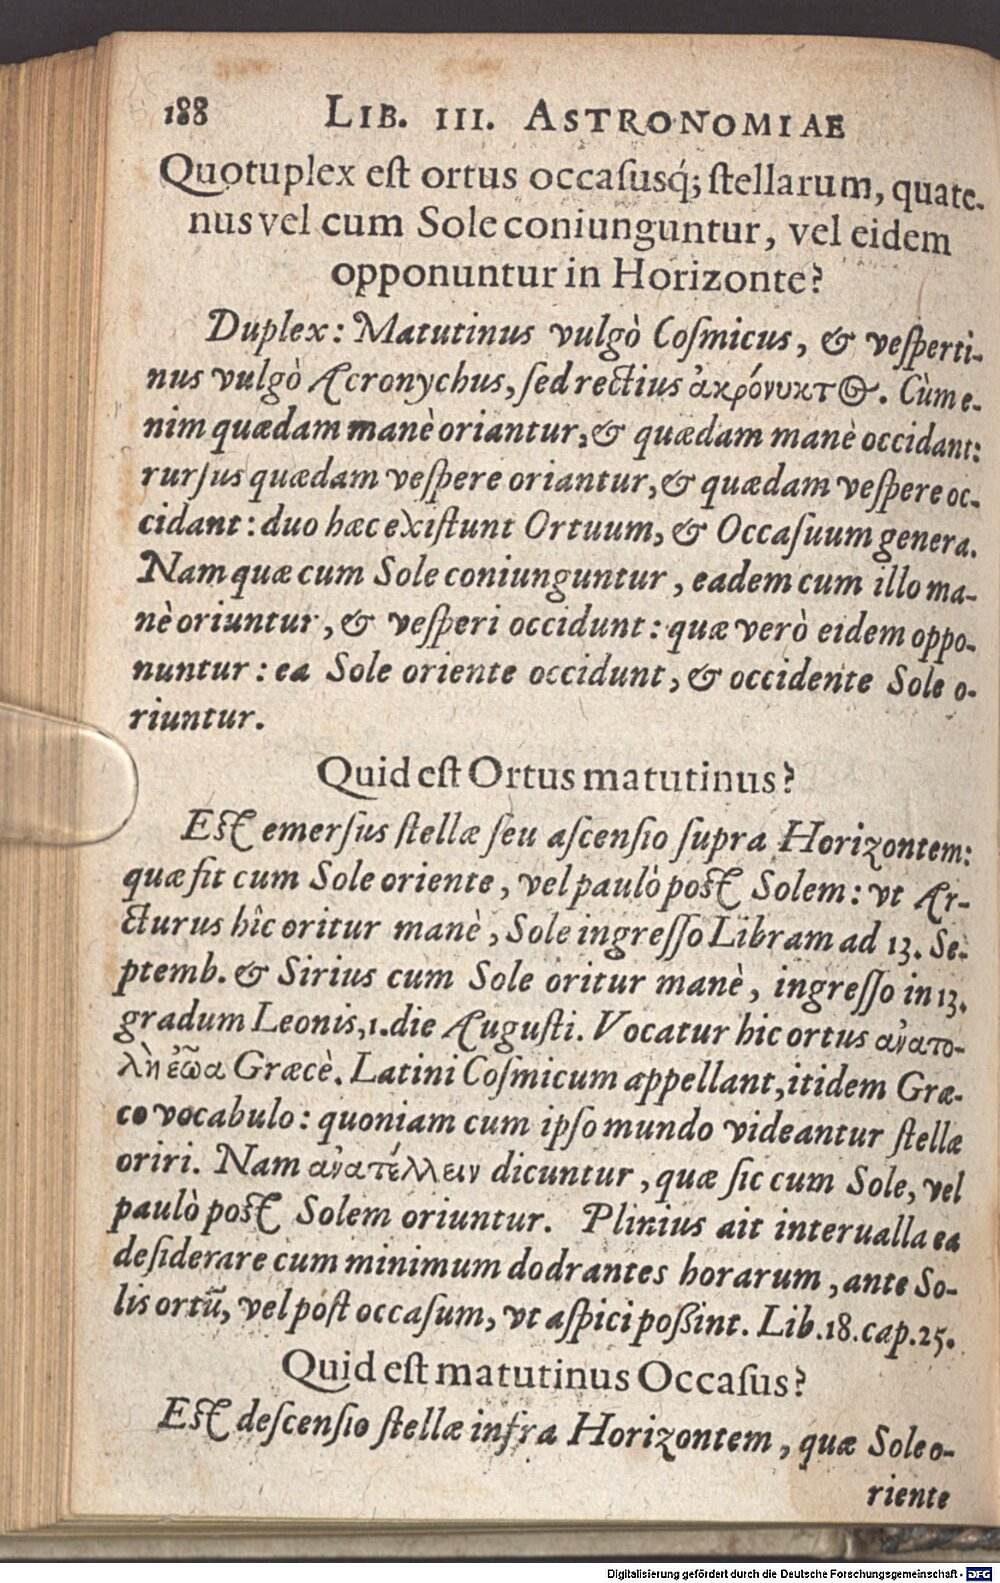 188 LIB. III. ASTRONOMIAE
Quotuplex est ortus occasusq́; stellarum, quate-
nus vel cum Sole coniunguntur, vel eidem
opponuntur in Horizonte?
Duplex: Matutinus vulgò Cosmicus, & vesperti-
nus vulgò Acronychus, sed rectius ἀκρόνυκτος. Cùm e-
nim quædam manè oriantur, & quædam manè occidant:
rursus quædam vespere oriantur, & quædam vespere oc-
cidant: duo hæc existunt Ortuum, & Occasuum genera.
Nam quæ cum Sole coniunguntur, eadem cum illo ma-
nè oriuntur, & vesperi occidunt: quæ verò eidem oppo-
nuntur: ea Sole oriente occidunt, & occidente Sole o-
riuntur.
Quid est Ortus matutinus?
Est emersus stellæ seu ascensio supra Horizontem:
quæ fit cum Sole oriente, vel paulò post Solem: vt Ar-
cturus hîc oritur manè, Sole ingresso Libram ad 13. Se-
ptemb. & Sirius cum Sole oritur manè, ingresso in 13.
gradum Leonis, 1. die Augusti. Vocatur hic ortus ἀνατο-
λὴ ἑῶα Græcè. Latini Cosmicum appellant, itidem Græ-
co vocabulo: quoniam cum ipso mundo videantur stellæ
oriri. Nam ἀνατέλλειν dicuntur, quæ sic cum Sole, vel
paulò post Solem oriuntur. Plinius ait interualla ea
desiderare cum minimum dodrantes horarum, ante So-
lis ortū, vel post occasum, vt aspici possint. Lib. 18. cap. 25.
Quid est matutinus Occasus?
Est descensio stellæ infra Horizontem, quæ Sole o-
riente
Digitalisierung gefördert durch die Deutsche Forschungsgemeinschaft - DFG